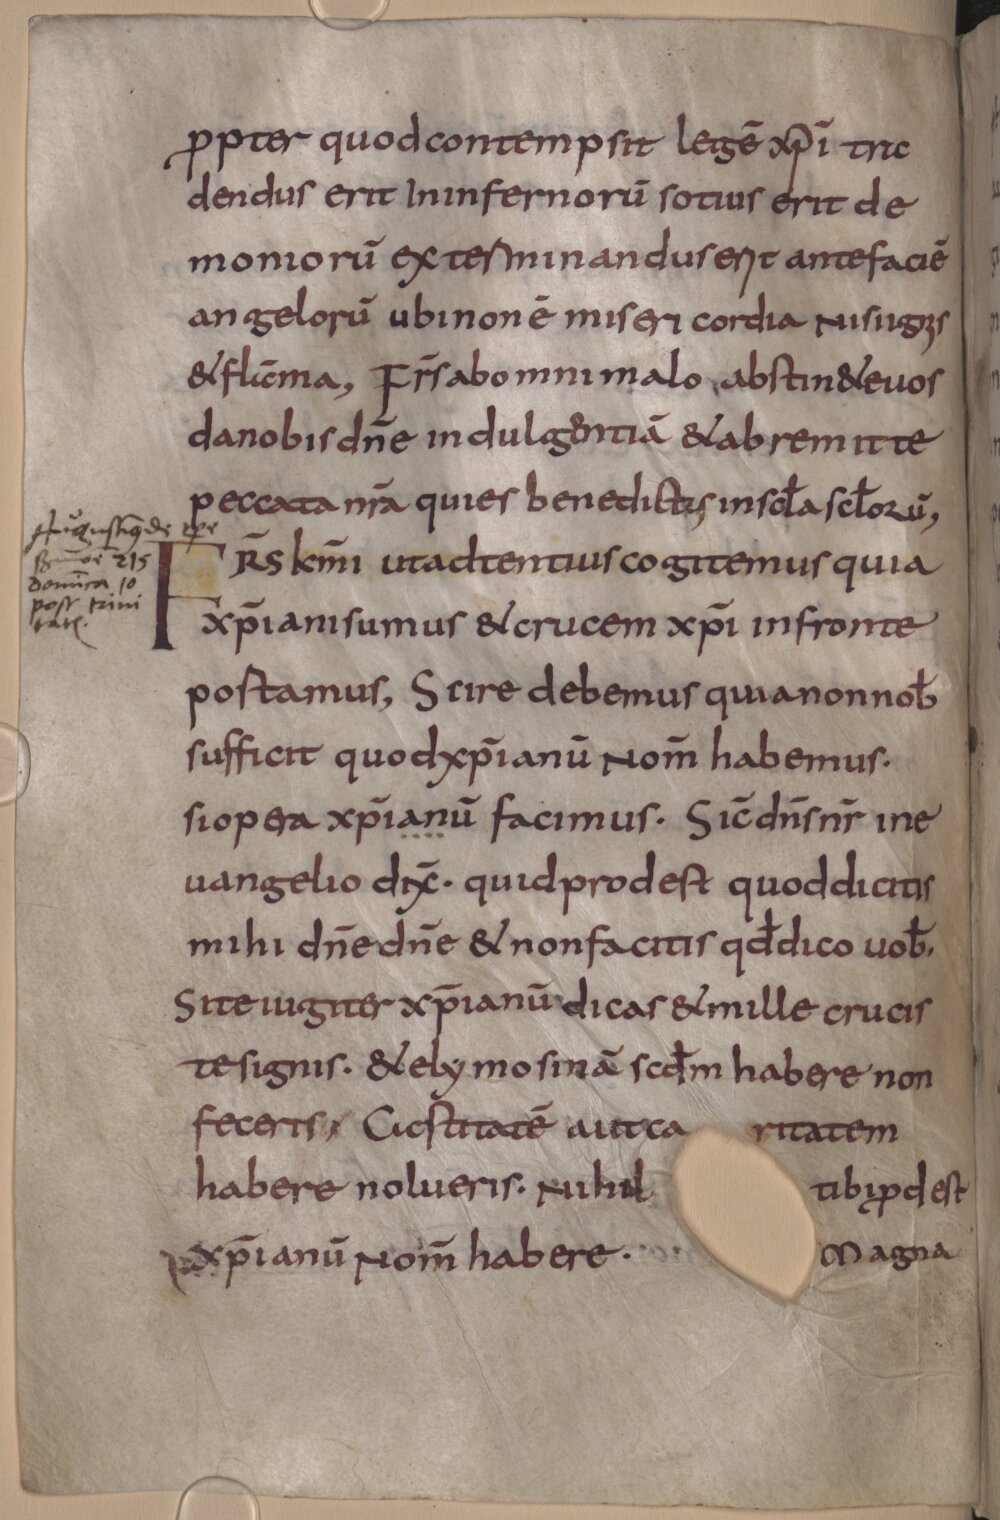 ꝓpter quod contempsit legē xp̄i tric
dendus erit In infernorū sotius erit de
moniorū exterminandus erit ante faciē
angelorū ubi non ē misericordia Nisi ignis
& flāma, Fr̄s ab omni malo abstin&e uos
da nobis dn̄e indulgentiā & ab remitte
peccata nr̄a qui es benedictus in scl̄a scl̄orū,
Augustiꝰ de tp̄e
sermōe 215
domīca 10
post trini
tatē.
FR̄s km̄i ut adtentius cogitemus quia
xp̄iani sumus & crucem xp̄i in fronte
postamus, Scire debemus quia non nob̄
sufficit quod xp̄ianū Nom̄ habemus.
si opera xp̄ianū facimus. Sic̄ dn̄s nr̄ in e
uangelio dix̄. quid prodest quod dicitis
mihi dn̄e dn̄e & non facitis qd̄ dico uob̄.
Si te iugiter xp̄ianū dicas & mille crucis
te signis. & elymosinā scd̄m habere non
feceris, Castitatē aut ca ritatem
habere nolueris. Nihil tibi ꝓdest
xp̄ianū Nom̄ habere. Magna